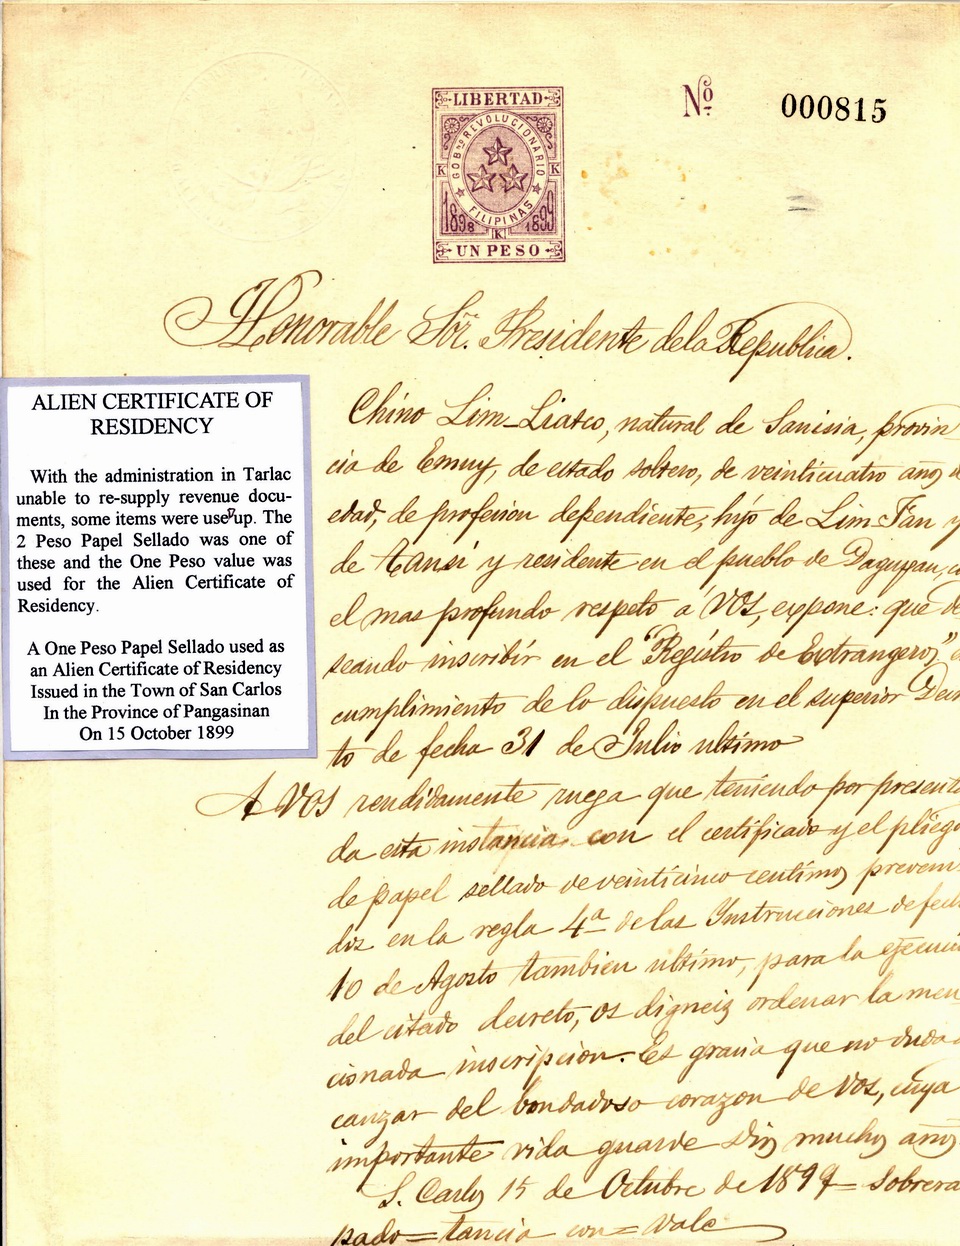 LIBERTAD
GOBNO REVOLUCIONARIO
FILIPINAS
K K
1898 1899
K
UN PESO
No. 000815
Honorable Sor. Presidente de la Republica.
ALIEN CERTIFICATE OF
RESIDENCY
With the administration in Tarlac
unable to re-supply revenue docu-
ments, some items were used up. The
2 Peso Papel Sellado was one of
these and the One Peso value was
used for the Alien Certificate of
Residency.
A One Peso Papel Sellado used as
an Alien Certificate of Residency
Issued in the Town of San Carlos
In the Province of Pangasinan
On 15 October 1899
Chino Lim-Liatco, natural de provin
cia de Emuy, de estado soltero, de veinticuatro años
edad, de profesion dependiente, hijo de Lim-Tan y
de y residente en el pueblo de
el mas profundo respeto á Vos, expone: que de
seando inscribir en el "Registro de Extrangeros,"
cumplimiento de lo dispuesto en el superior Decre
to de fecha 31 de Julio ultimo
A Vos rendidamente ruega que teniendo por presenta
da esta instancia con el certificado y el pliego
de papel sellado de veinticinco centimos preveni
dos en la regla 4a de las Instrucciones de fech
10 de Agosto tambien ultimo, para la ejecucio
del citado decreto, os digneis ordenar la men
cionada inscripcion. Es gracia que no duda
canzar del bondadoso corazon de Vos, cuya
importante vida guarde Dios muchos años.
S. Carlos 15 de Octubre de 1899= Sobrera
pado=tancia con=vale